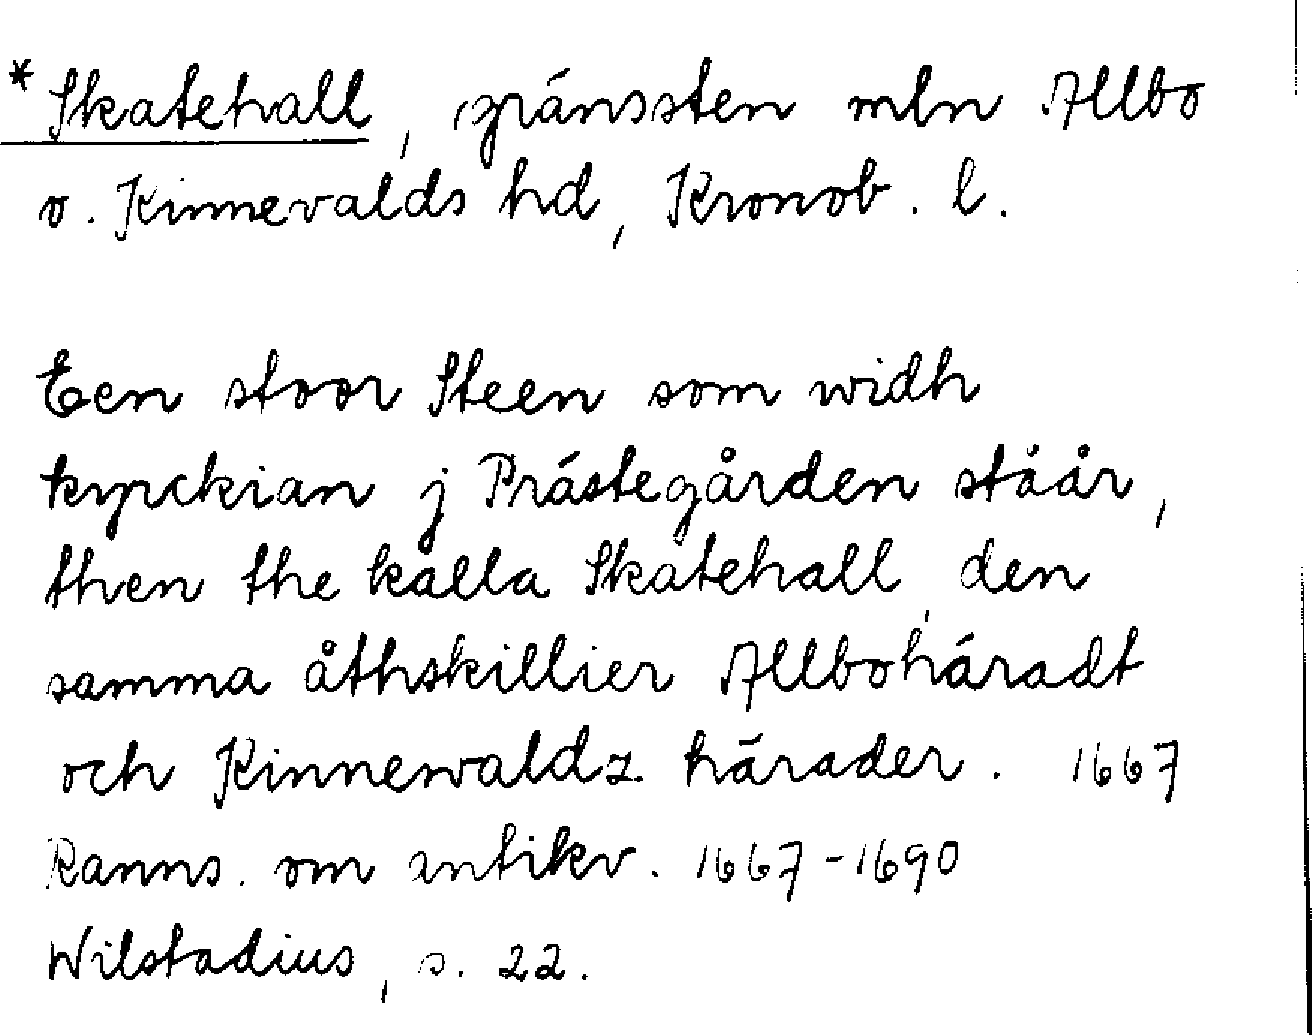 *Skatehall, gränssten mln Allbo
o. Kinnevalds hd, Kronob. l.
Een stoor Steen som widh
kyrckian j Prästegården ståår,
then the kalla Skatehall, den
samma åthskillier Allbohäradt
och Kinnewaldz härader. 1667
Ranns. om antikv. 1667-1690
Wilstadius, s. 22.